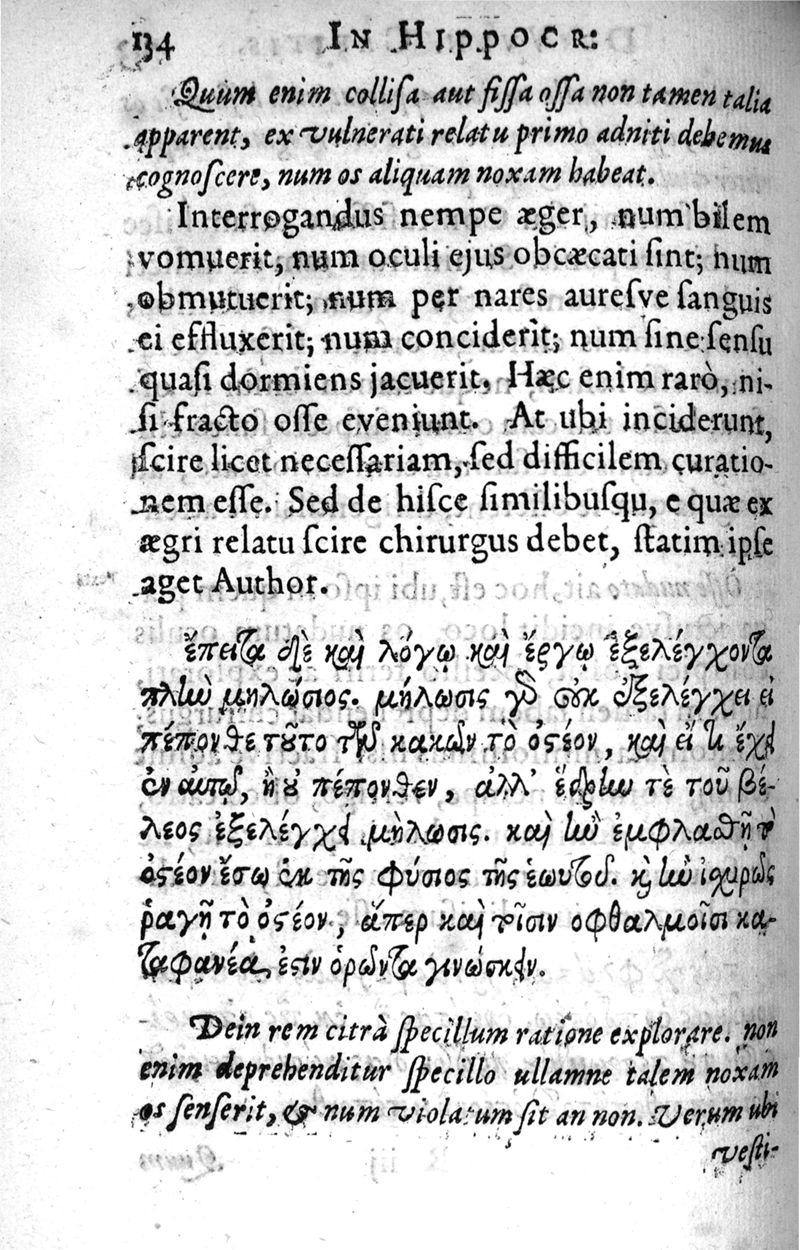 134 IN HIPPOCR:
Quum enim collisa aut fissa ossa non tamen talia
apparent, ex vulnerati relatu primo adniti debemus
cognoscere, num os aliquam noxam habeat.
Interrogandus nempe æger, num bilem
vomuerit, num oculi ejus obcæcati sint; num
obmutuerit; num per nares auresve sanguis
ei effluxerit; num conciderit; num sine sensu
quasi dormiens jacuerit. Hæc enim rarò, ni-
si fracto osse eveniunt. At ubi inciderunt,
scire licet necessariam, sed difficilem curatio-
nem esse. Sed de hisce similibusqu, e quæ ex
ægri relatu scire chirurgus debet, statim ipse
aget Author.
ἔπειτα δὲ καὶ λόγῳ καὶ ἔργῳ ἐξελέγχοντα
πλὴν μηλώσιος. μήλωσις γὰρ οὐκ ἐξελέγχει εἰ
πέπονθε τοῦτο τῶν κακῶν τὸ ὀστέον, καὶ εἴ τι ἔχει
ἐν αὐτῷ, ἢ οὐ πέπονθεν, ἀλλ' ἕδρην τὲ τοῦ βέ-
λεος ἐξελέγχει μήλωσις. καὶ ἢν ἐμφλαθῇ τὸ
ὀστέον ἔσω ἐκ τῆς φύσιος τῆς ἑωυτοῦ. καὶ ἢν ἰσχυρῶς
ῥαγῇ τὸ ὀστέον, ἅπερ καὶ τοῖσιν οφθαλμοῖσι κα-
ταφανέα ἐστὶν ὁρῶντα γινώσκειν.
Dein rem citrà specillum ratione explorare. non
enim deprehenditur specillo ullamne talem noxam
os senserit, & num violatum sit an non. Verum ubi
vesti-